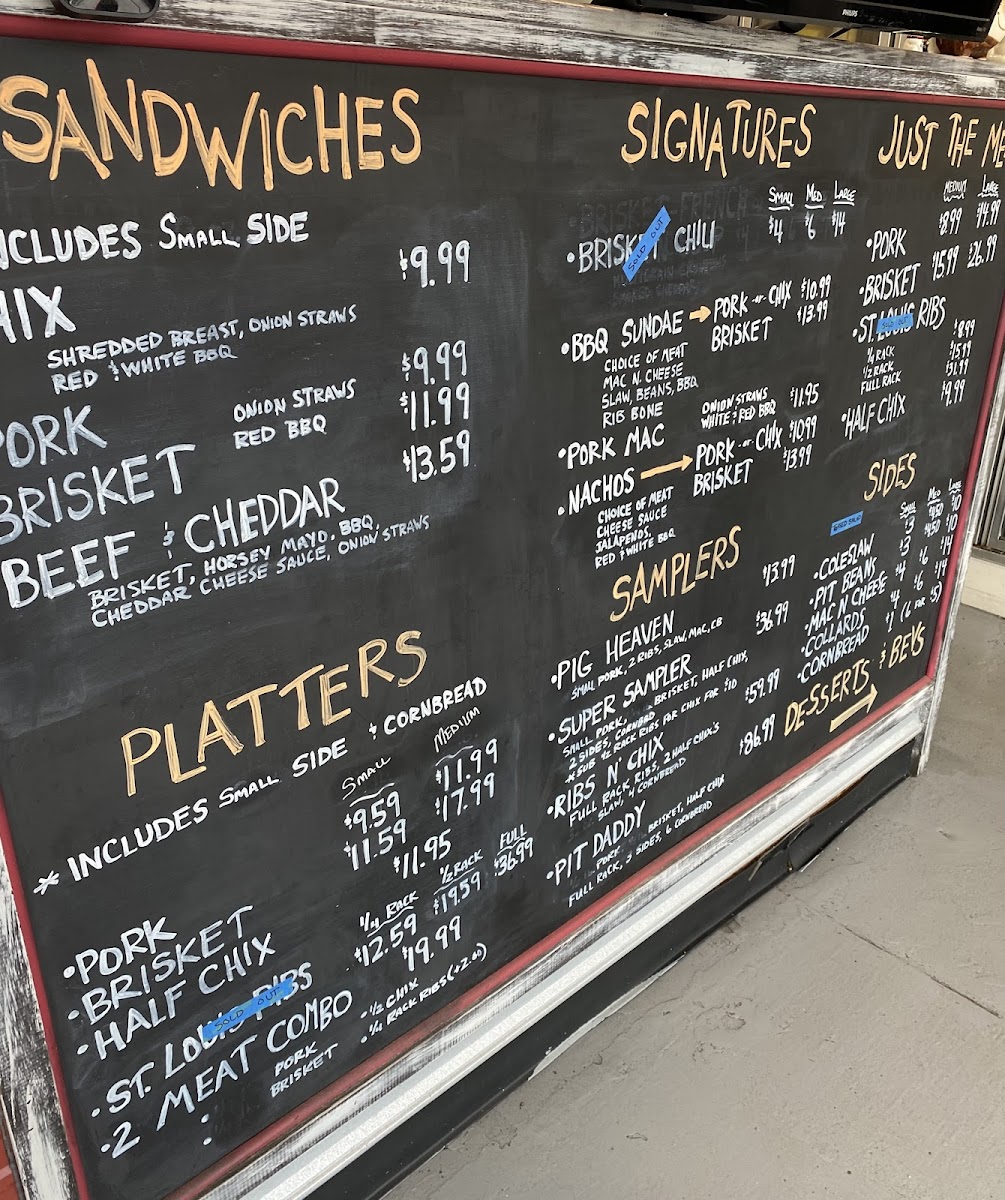 PHILIPS
SANDWICHES
INCLUDES SMALL SIDE
CHIX $9.99
SHREDDED BREAST, ONION STRAWS
RED & WHITE BBQ
PORK $9.99
ONION STRAWS
RED BBQ
BRISKET $11.99
BEEF & CHEDDAR $13.59
BRISKET, HORSEY MAYO, BBQ,
CHEDDAR CHEESE SAUCE, ONION STRAWS
PLATTERS
* INCLUDES SMALL SIDE & CORNBREAD
SMALL MEDIUM
•PORK $9.59 $11.99
•BRISKET $11.59 $17.99
•HALF CHIX $11.95
1/4 RACK 1/2 RACK FULL
•ST. LOUIS RIBS $12.59 $19.59 $36.99
SOLD OUT
•2 MEAT COMBO $19.99
• PORK •1/2 CHIX
• BRISKET •1/4 RACK RIBS (+2.00)
SIGNATURES
SMALL MED LARGE
•BRISKET CHILI $4 $6 $14
SOLD OUT
•BBQ SUNDAE → PORK -or- CHIX $10.99
BRISKET $13.99
CHOICE OF MEAT
MAC N. CHEESE
SLAW, BEANS, BBQ
RIB BONE
•PORK MAC ONION STRAWS $11.95
WHITE & RED BBQ
•NACHOS → PORK -or- CHIX $10.99
BRISKET $13.99
CHOICE OF MEAT
CHEESE SAUCE
JALAPENOS,
RED & WHITE BBQ
SAMPLERS
•PIG HEAVEN $13.99
SMALL PORK, 2 RIBS, SLAW, MAC, CB
•SUPER SAMPLER $36.99
SMALL PORK, BRISKET, HALF CHIX,
2 SIDES, CORNBRD
* SUB 1/2 RACK RIBS FOR CHIX FOR $10
•RIBS N' CHIX $59.99
FULL RACK, RIBS, 2 HALF CHIX'S
SLAW, 4 CORNBREAD
•PIT DADDY $86.99
PORK, BRISKET, HALF CHIX
FULL RACK, 3 SIDES, 6 CORNBREAD
JUST THE ME
MEDIUM LARGE
•PORK $8.99 $14.99
•BRISKET $15.99 $26.99
•ST. LOUIS RIBS
SOLD OUT
1/4 RACK $8.99
1/2 RACK $15.99
FULL RACK $31.99
•HALF CHIX $9.99
SIDES
SMALL MED LARGE
•COLESLAW $3 $4.50 $10
•PIT BEANS $3 $4.50 $10
•MAC N CHEESE $4 $6 $14
•COLLARDS $4 $6 $14
•CORNBREAD $1 (6 FOR $5)
DESSERTS & BEVS →